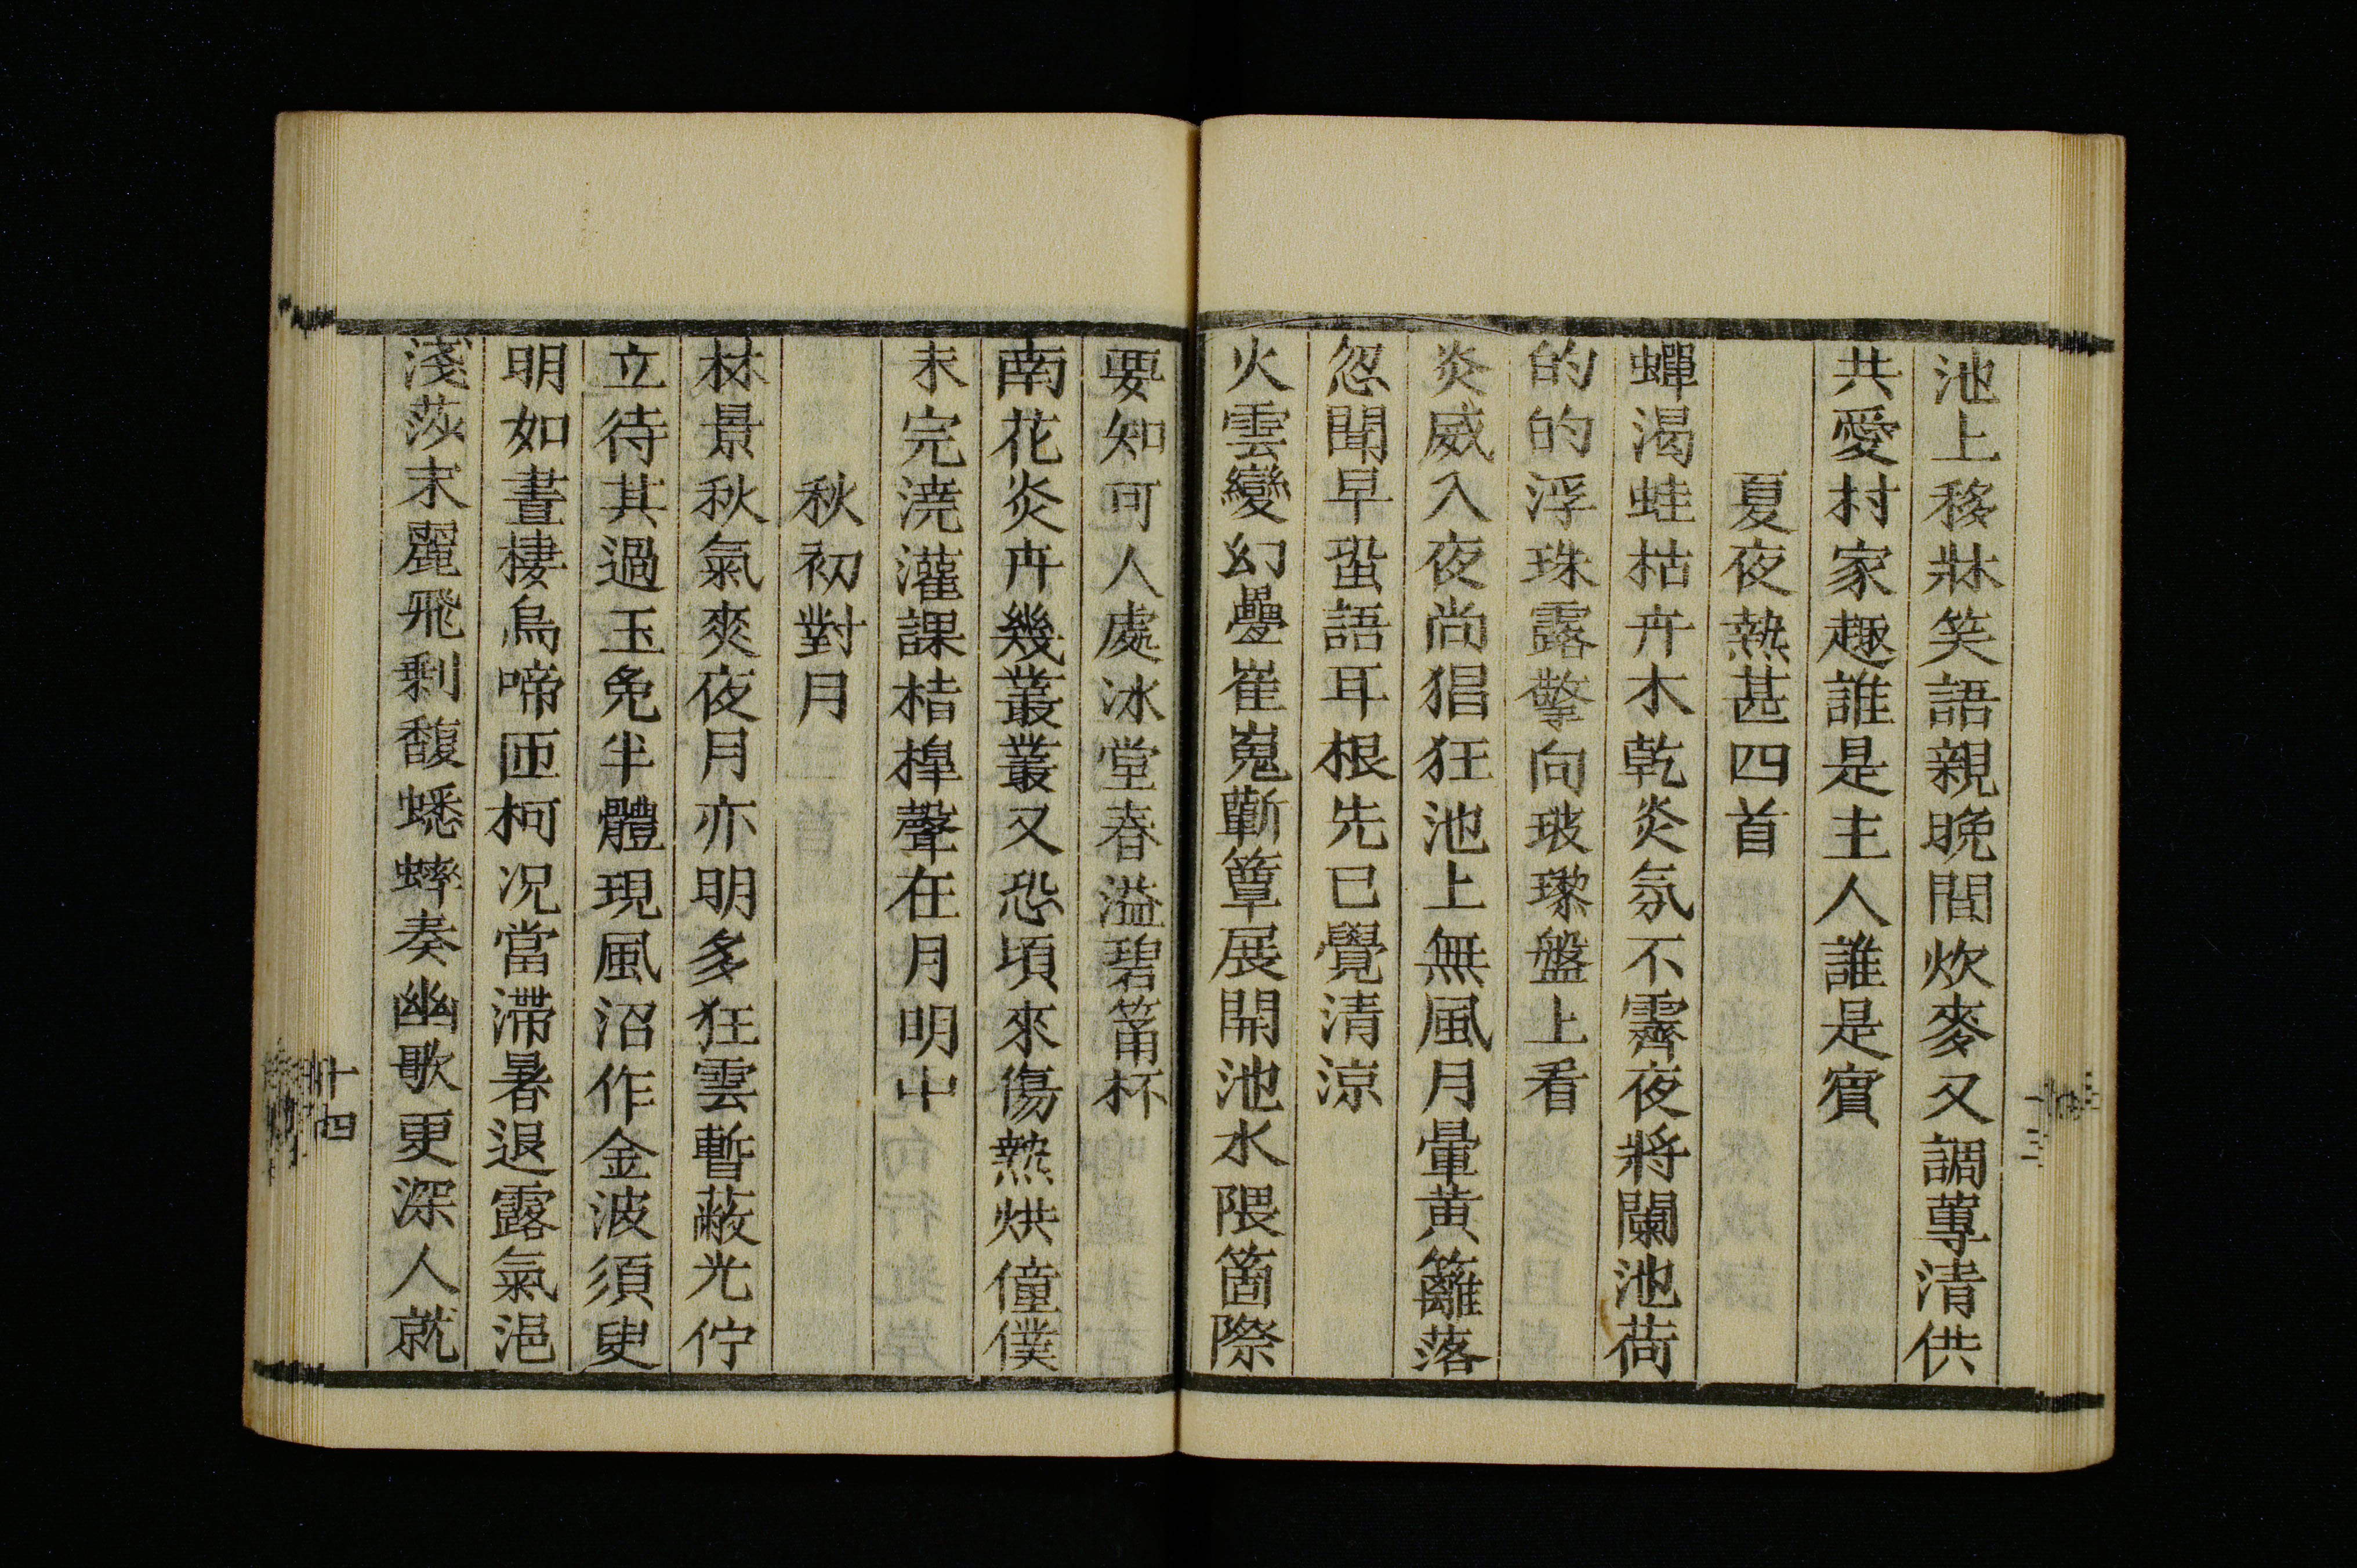 池上移牀笑語親晩間炊麥又調蓴清供
共愛村家趣誰是主人誰是賓
夏夜熱甚四首
蟬渴蛙枯卉木乾炎氛不霽夜將闌池荷
的的浮珠露擎向玻瓈盤上看
炎威入夜尚猖狂池上無風月暈黄籬落
忽聞早蛩語耳根先已覺清涼
火雲變幻疊崔嵬蘄簟展開池水隈箇際
要知可人處冰堂春溢碧筩杯
南花炎卉幾叢叢又恐頃來傷熱烘僮僕
未完澆灌課桔槹聲在月明中
秋初對月
林景秋氣爽夜月亦明多狂雲暫蔽光佇
立待其過玉兔半體現風沼作金波須臾
明如晝棲烏啼匝柯况當滯暑退露氣浥
淺莎末麗飛剩馥蟋蟀奏幽歌更深人就
十四